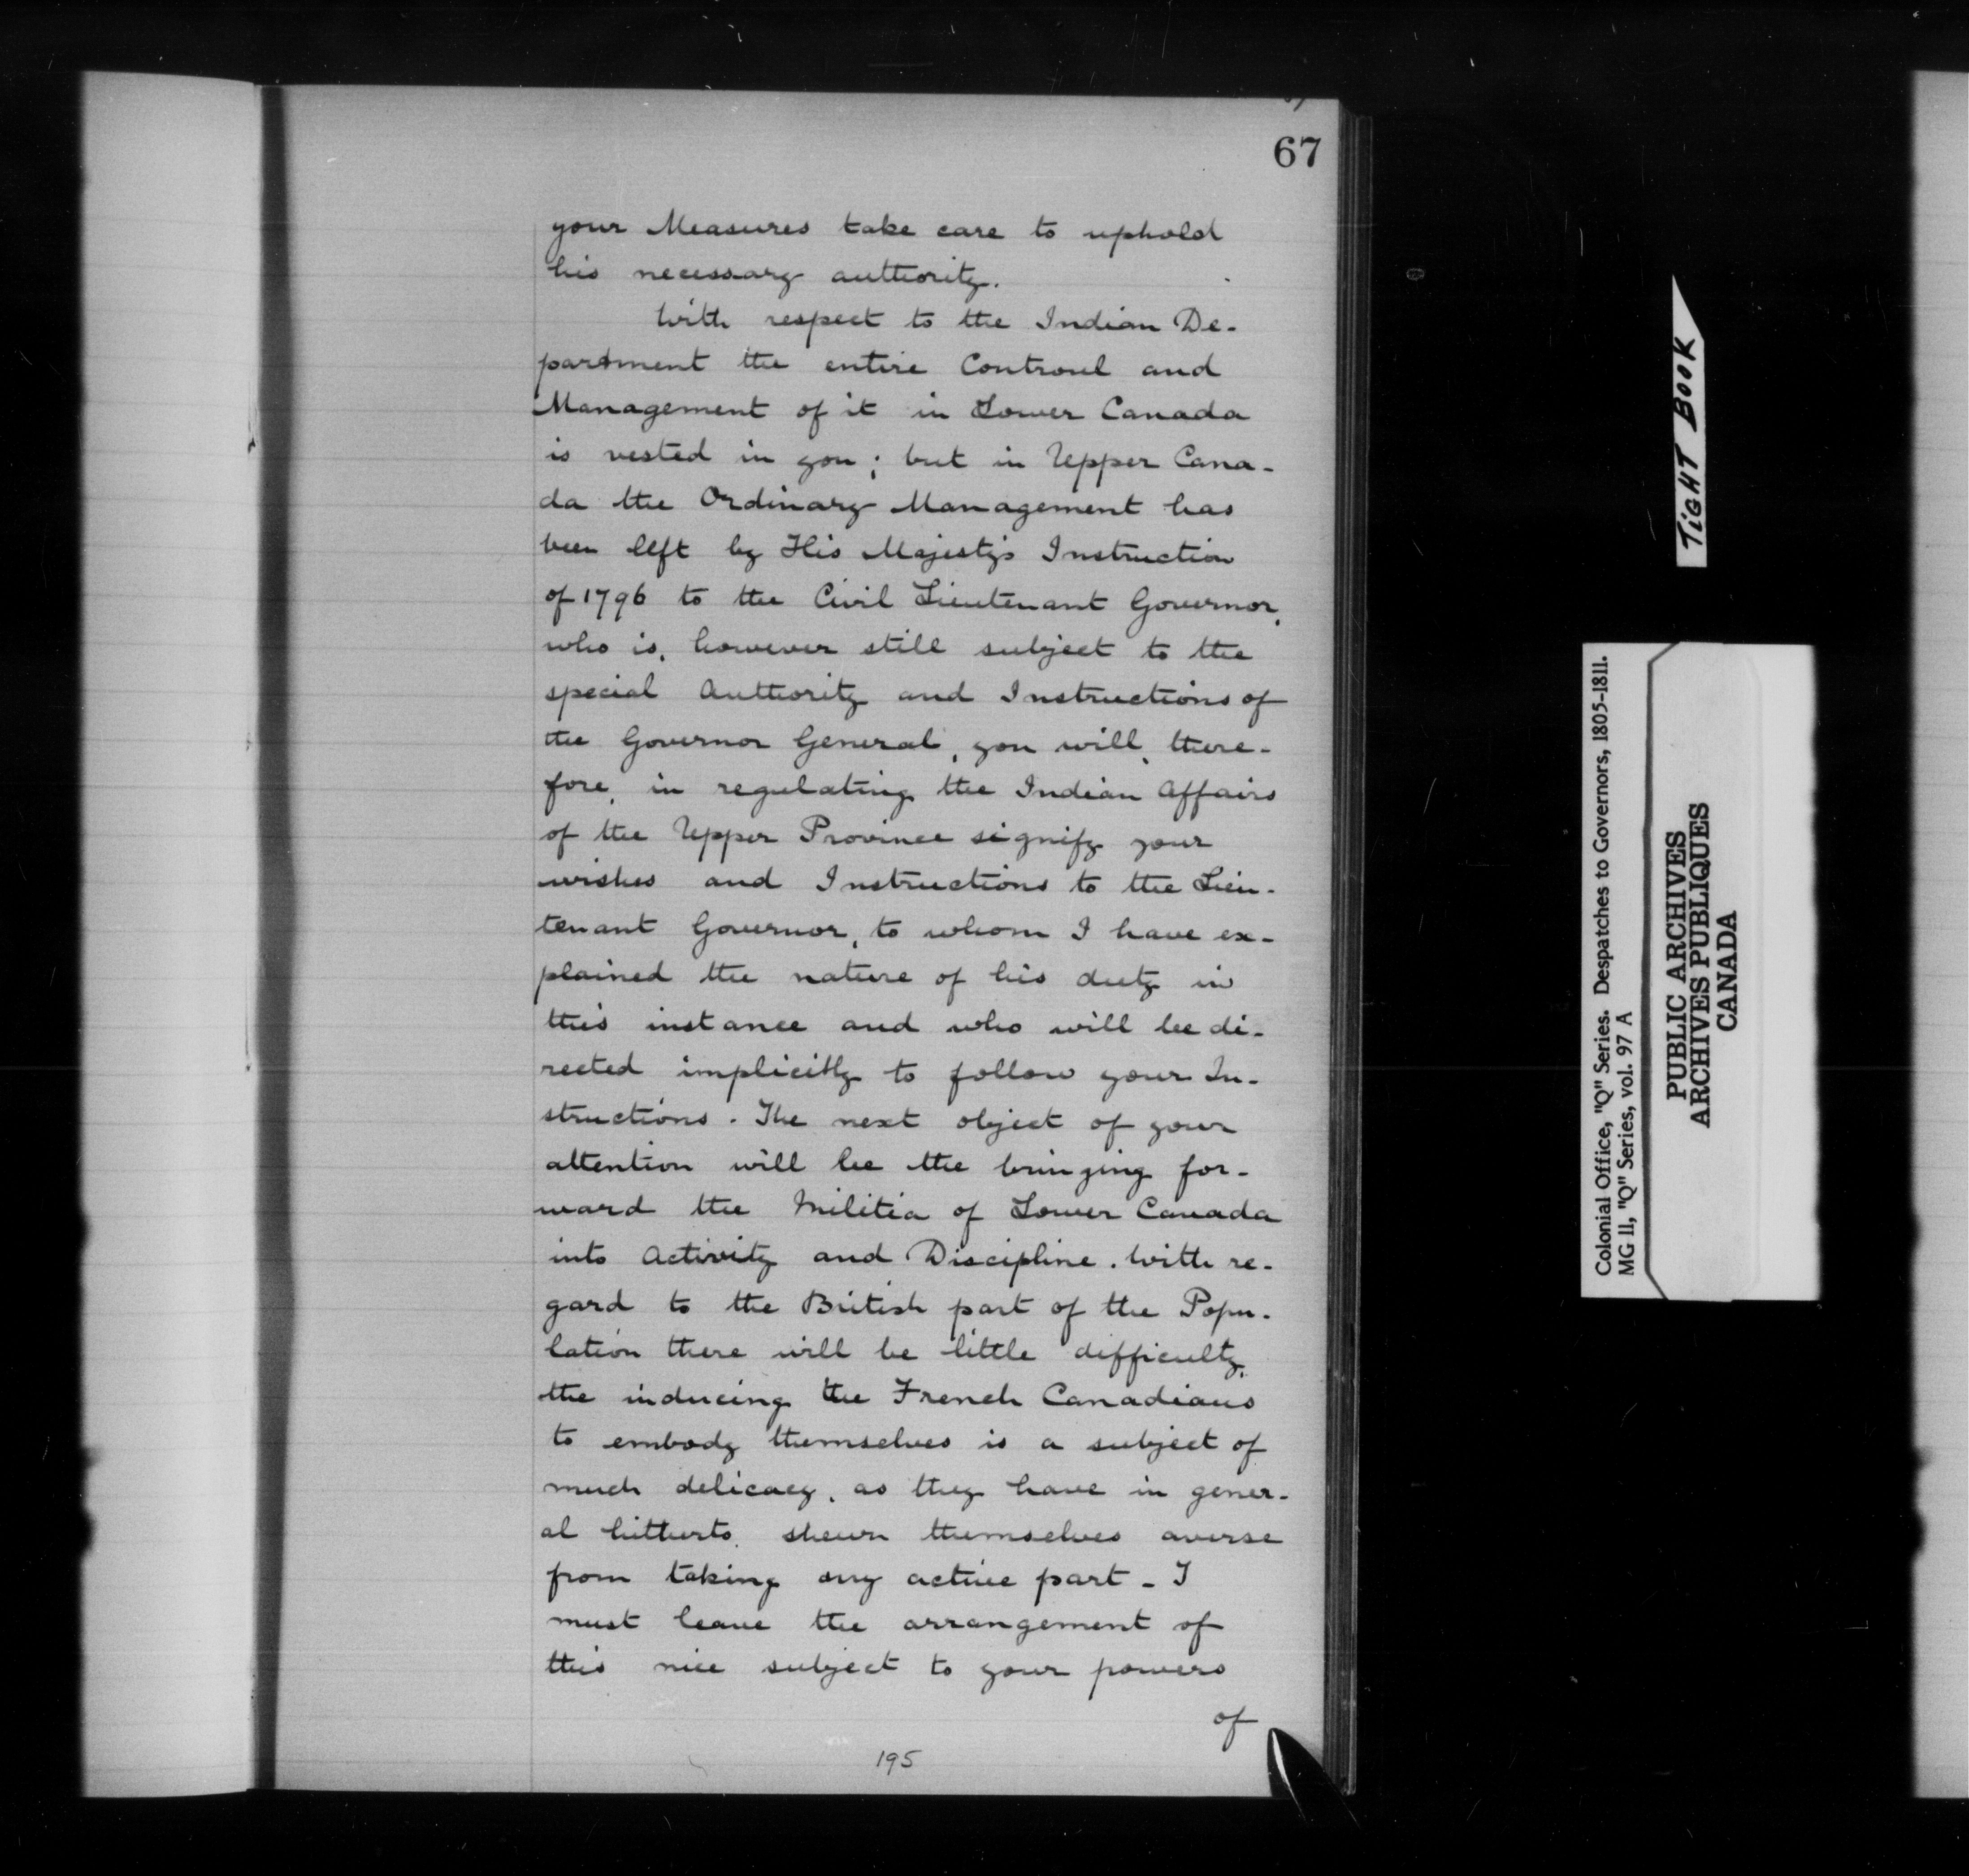 67
your Measures take care to uphold
his necessary authority.
With respect to the Indian De-
partment the entire Controul and
Management of it in Lower Canada
is vested in you; but in Upper Cana-
da the Ordinary Management has
been left by His Majesty's Instruction
of 1796 to the Civil Lieutenant Governor,
who is, however still subject to the
special Authority and Instructions of
the Governor General, you will, there-
fore, in regulating the Indian Affairs
of the Upper Province signify your
wishes and Instructions to the Lieu-
tenant Governor, to whom I have ex-
plained the nature of his duty in
this instance and who will be di-
rected implicitly to follow your In-
structions. The next object of your
attention will be the bringing for-
ward the Militia of Lower Canada
into Activity and Discipline. With re-
gard to the British part of the Popu-
lation there will be little difficulty,
the inducing the French Canadians
to embody themselves is a subject of
much delicacy, as they have in gener-
al hitherto, shewn themselves averse
from taking any active part - I
must leave the arrangement of
this nice subject to your powers
of
195
TIGHT BOOK
Colonial Office, "Q" Series. Despatches to Governors, 1805-1811.
MG 11, "Q" Series, vol. 97 A
PUBLIC ARCHIVES
ARCHIVES PUBLIQUES
CANADA